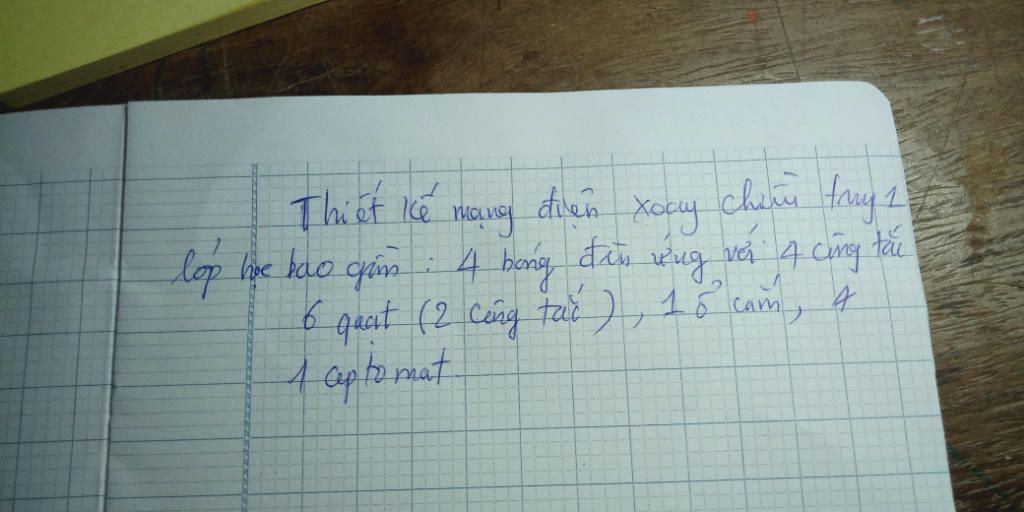 Thiết kế mạng điện xoay chiều trong 1
lớp học bao gồm : 4 bóng đèn ứng với 4 công tắc
6 quạt (2 công tắc), 1 ổ cắm, 4
1 aptomat.